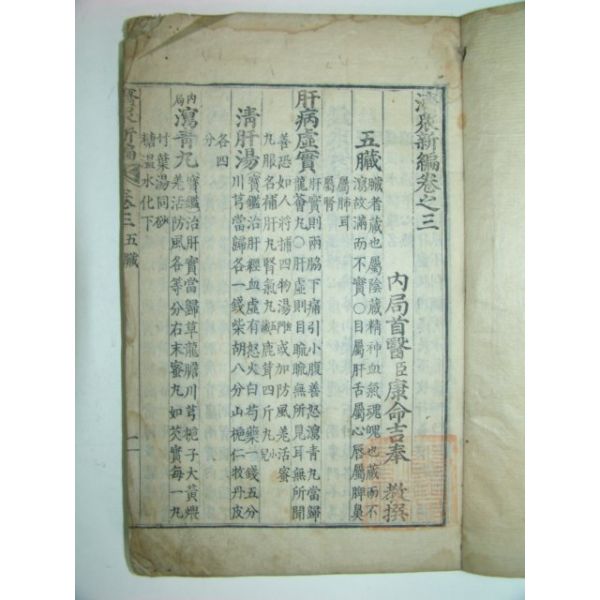 濟衆新編卷之三
內局首醫臣康命吉奉 教撰
五臟
臟者藏也屬陰藏精神血氣魂魄也藏而不
瀉故滿而不實○目屬肝舌屬心唇屬脾鼻
屬肺耳
屬腎
肝病虛實
肝實則兩脇下痛引小腹善怒瀉靑丸當歸
龍薈丸○肝虛則目䀮䀮無所見耳無所聞
善恐如人將捕四物湯或加防風羌活蜜
丸服名補肝丸腎氣丸鹿茸四斤丸
淸肝湯
寶鑑治肝經血虛有怒火白芍藥一錢五分
川芎當歸各一錢柴胡八分山梔仁牧丹皮
各四
分
內局瀉靑丸
寶鑑治肝實當歸草龍膽川芎梔子大黃煨
羌活防風各等分右末蜜丸如芡實每一丸
竹葉湯同砂
糖溫水化下
濟衆新編 卷三 五臟 一